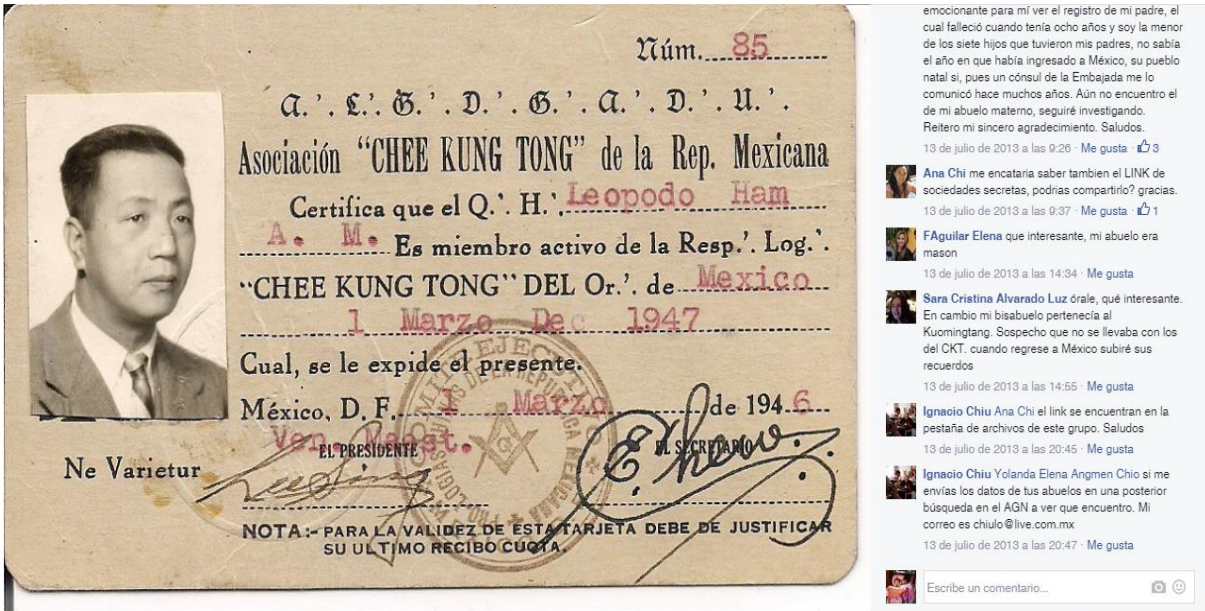 Núm. 85
A.'. L.'. G.'. D.'. G.'. A.'. D.'. U.'.
Asociación "CHEE KUNG TONG" de la Rep. Mexicana
Certifica que el Q.'. H.'. Leopodo Ham
A. M. Es miembro activo de la Resp.'. Log.'.
"CHEE KUNG TONG" DEL Or.'. de Mexico
1 Marzo Dec 1947
Cual, se le expide el presente.
México, D. F. 1 Marzo de 1946
Ven. Maest.
EL PRESIDENTE EL SECRETARIO
Ne Varietur
Lee Sing
E. Chew.
COMITE EJECUTIVO
NOTA:- PARA LA VALIDEZ DE ESTA TARJETA DEBE DE JUSTIFICAR
SU ULTIMO RECIBO CUOTA.
emocionante para mí ver el registro de mi padre, el
cual falleció cuando tenía ocho años y soy la menor
de los siete hijos que tuvieron mis padres, no sabía
el año en que había ingresado a México, su pueblo
natal si, pues un cónsul de la Embajada me lo
comunicó hace muchos años. Aún no encuentro el
de mi abuelo materno, seguiré investigando.
Reitero mi sincero agradecimiento. Saludos.
13 de julio de 2013 a las 9:26 · Me gusta · 3
Ana Chi me encataria saber tambien el LINK de
sociedades secretas, podrias compartirlo? gracias.
13 de julio de 2013 a las 9:37 · Me gusta · 1
FAguilar Elena que interesante, mi abuelo era
mason
13 de julio de 2013 a las 14:34 · Me gusta
Sara Cristina Alvarado Luz órale, qué interesante.
En cambio mi bisabuelo pertenecía al
Kuomingtang. Sospecho que no se llevaba con los
del CKT. cuando regrese a México subiré sus
recuerdos
13 de julio de 2013 a las 14:55 · Me gusta
Ignacio Chiu Ana Chi el link se encuentran en la
pestaña de archivos de este grupo. Saludos
13 de julio de 2013 a las 20:45 · Me gusta
Ignacio Chiu Yolanda Elena Angmen Chio si me
envías los datos de tus abuelos en una posterior
búsqueda en el AGN a ver que encuentro. Mi
correo es chiulo@live.com.mx
13 de julio de 2013 a las 20:47 · Me gusta
Escribe un comentario...